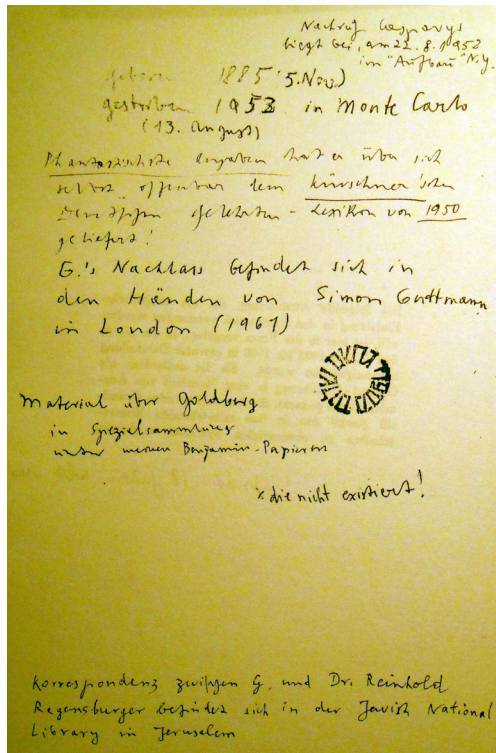 Nachruf Casparys
liegt bei, am 22.8.1952
im "Aufbau" N.Y.
geboren 1885 (5. Nov.)
gestorben 1952 in Monte Carlo
(13. August)
Phantastischste Angaben hat er über sich
selbst offenbar dem Kürschner'schen
Deutschen Gelehrten-Lexikon von 1950
geliefert!
G.'s Nachlass befindet sich in
den Händen von Simon Guttmann
in London (1967)
Material über Goldberg
in Spezialsammlung
unter meinen Benjamin-Papieren
die nicht existiert!
Korrespondenz zwischen G. und Dr. Reinhold
Regensburger befindet sich in der Jewish National
Library in Jerusalem